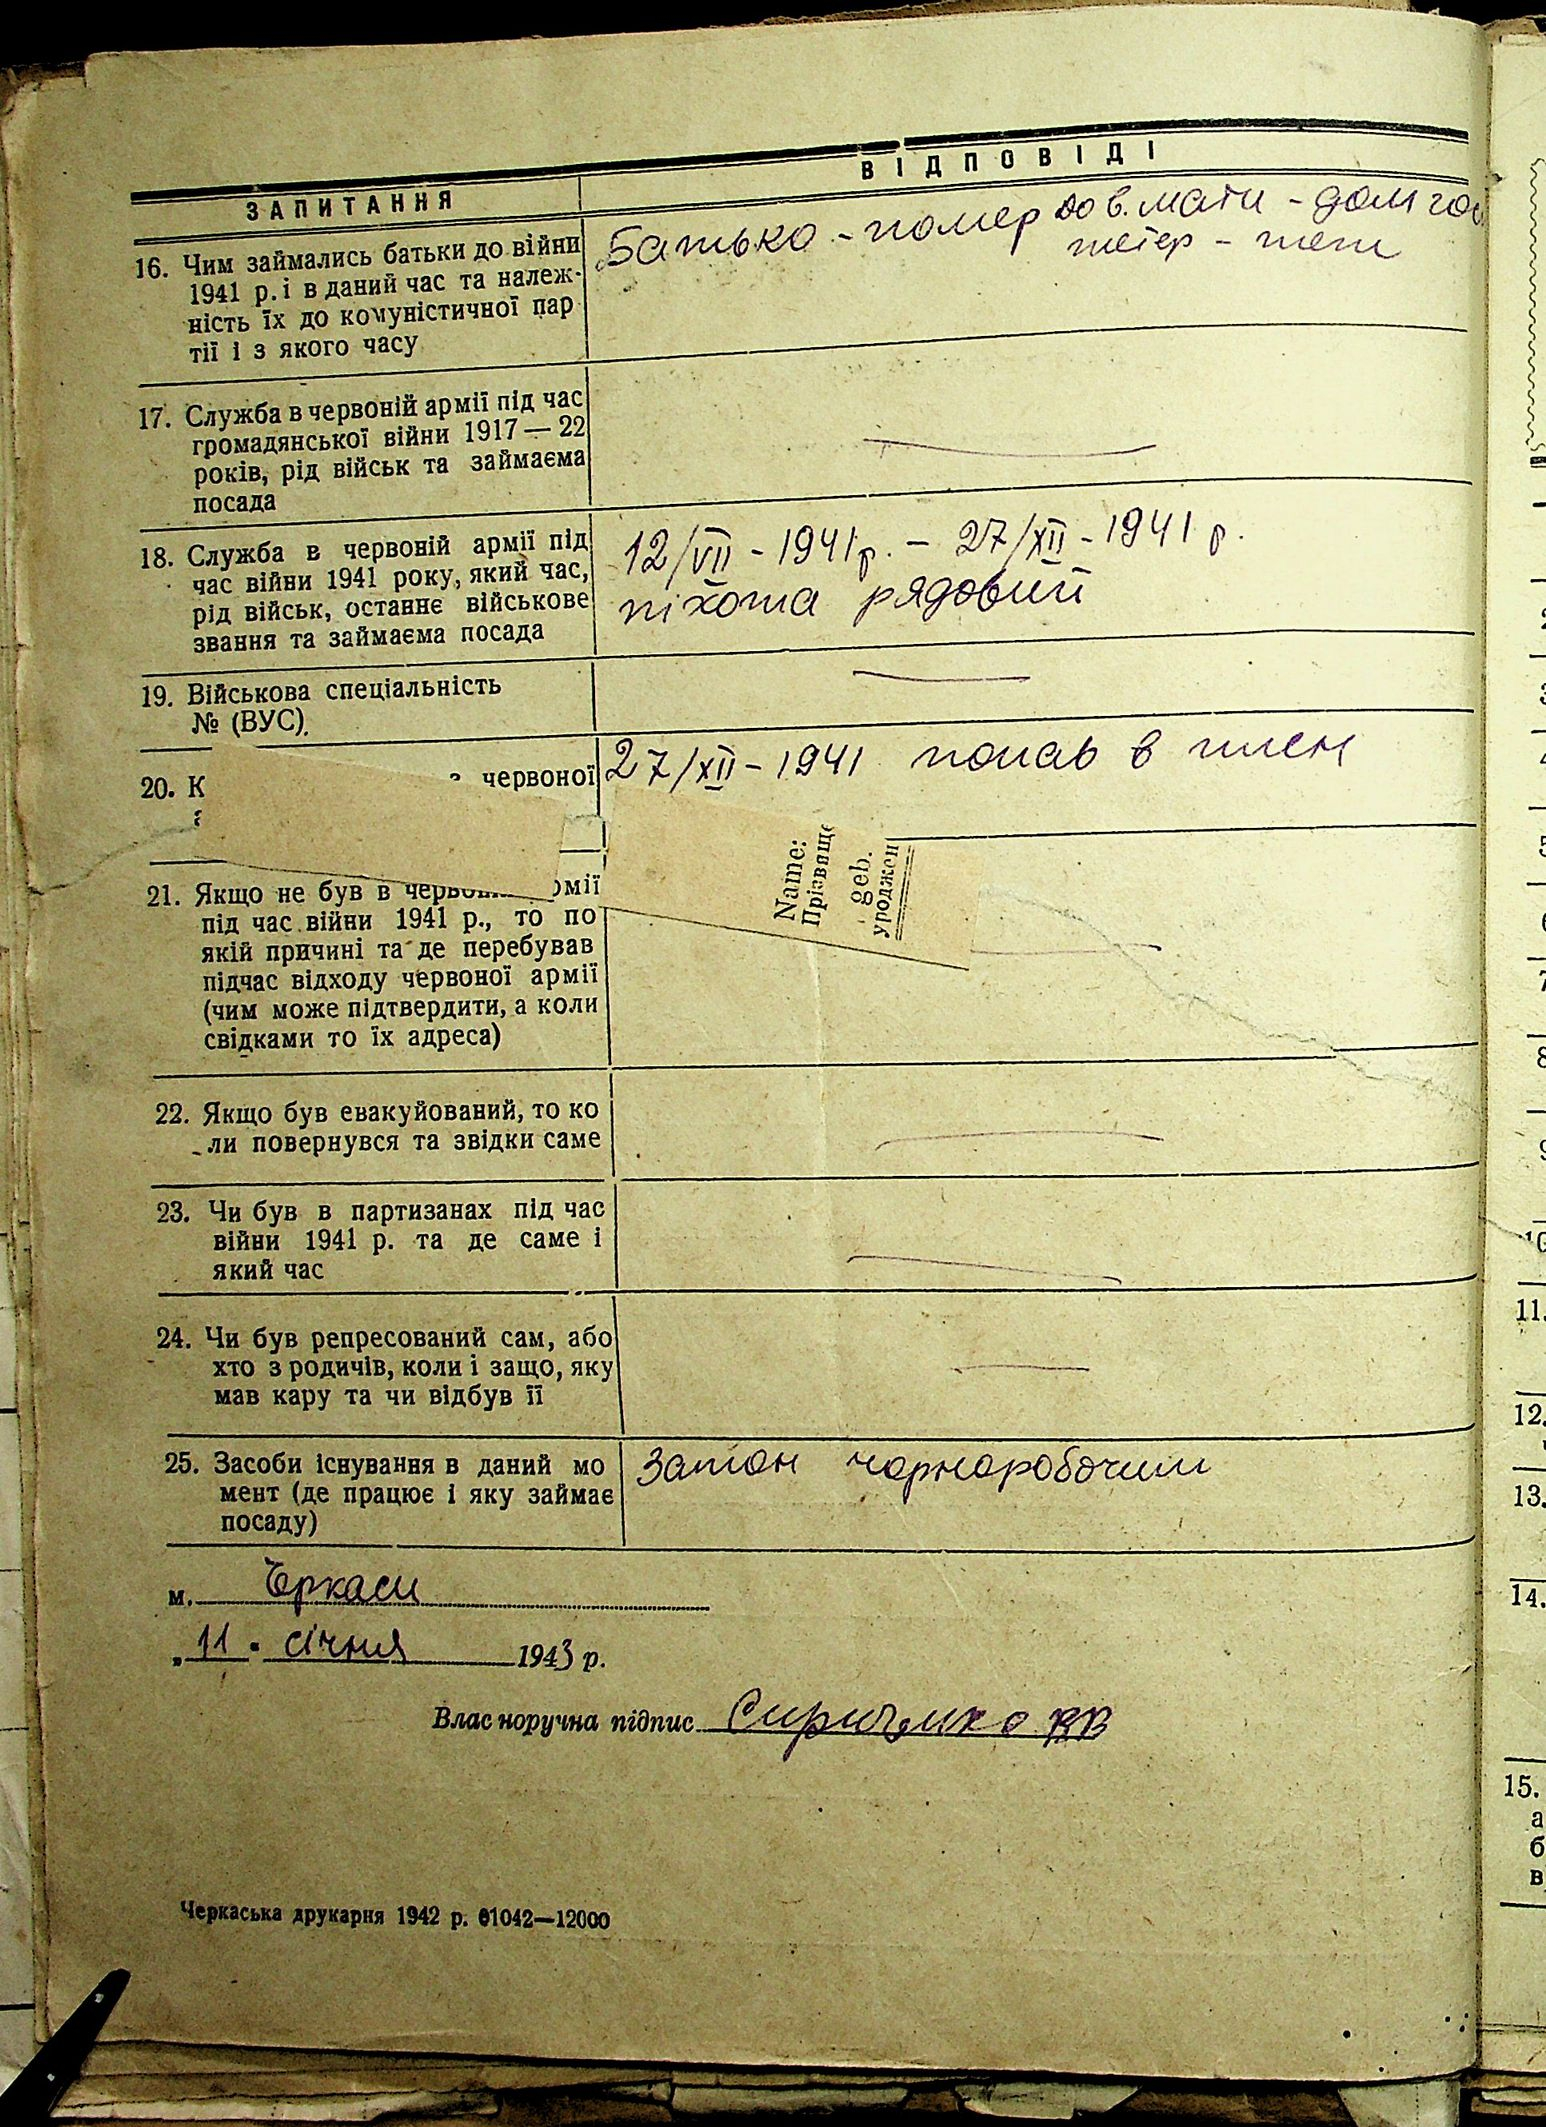 ЗАПИТАННЯ
ВІДПОВІДІ
16. Чим займались батьки до війни
1941 р. і в даний час та належ-
ність їх до комуністичної пар
тії і з якого часу
Батько - помер до в. мати - дом гос
тепер - теж
17. Служба в червоній армії під час
громадянської війни 1917 — 22
років, рід військ та займаєма
посада
18. Служба в червоній армії під
час війни 1941 року, який час,
рід військ, останнє військове
звання та займаєма посада
12/VII - 1941 р. - 27/XII - 1941 р.
піхота рядовий
19. Військова спеціальність
№ (ВУС).
20. К червоної
27/XII - 1941 попав в плен
Name:
Прізвище
geb.
уроджен
21. Якщо не був в армії
під час війни 1941 р., то по
якій причині та де перебував
підчас відходу червоної армії
(чим може підтвердити, а коли
свідками то їх адреса)
22. Якщо був евакуйований, то ко
ли повернувся та звідки саме
23. Чи був в партизанах під час
війни 1941 р. та де саме і
який час
24. Чи був репресований сам, або
хто з родичів, коли і защо, яку
мав кару та чи відбув її
25. Засоби існування в даний мо
мент (де працює і яку займає
посаду)
Затон чорноробочим
м. Черкаси
„ 11 " січня 1943 р.
Власноручна підпис
Черкаська друкарня 1942 р. 01042—12000
11.
12.
13.
14.
15.